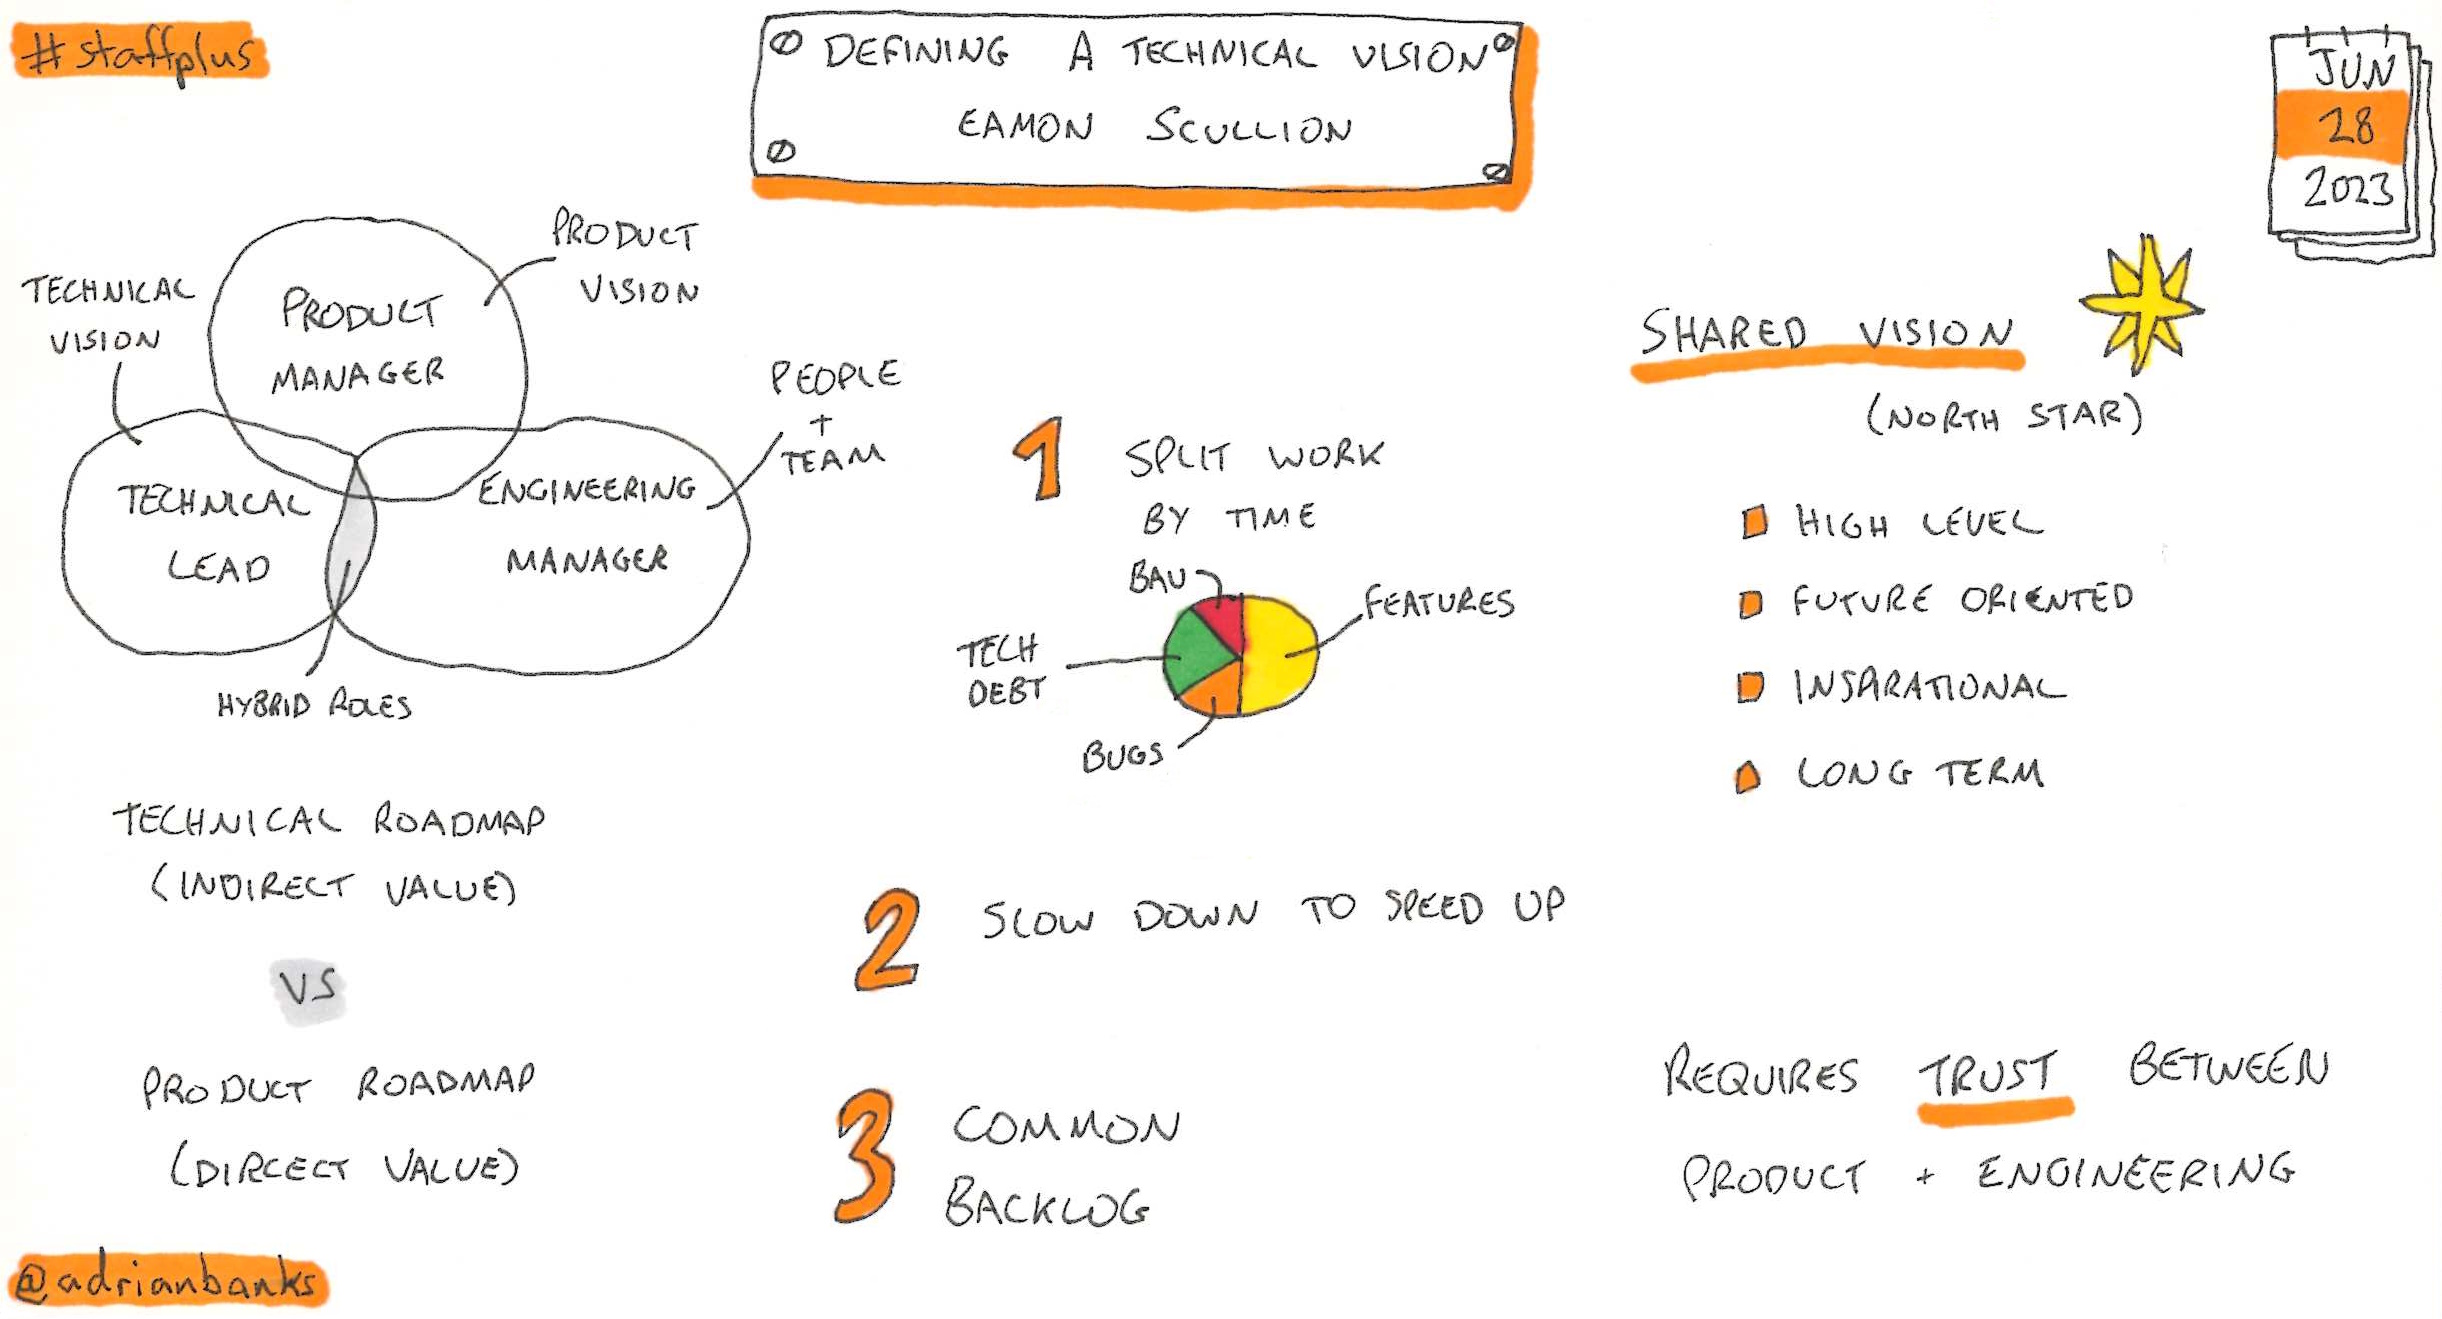 #staffplus
DEFINING A TECHNICAL VISION
EAMON SCULLION
JUN
28
2023
TECHNICAL
VISION
PRODUCT
VISION
PRODUCT
MANAGER
PEOPLE
+
TEAM
TECHNICAL
LEAD
ENGINEERING
MANAGER
HYBRID ROLES
TECHNICAL ROADMAP
(INDIRECT VALUE)
VS
PRODUCT ROADMAP
(DIRCECT VALUE)
1
SPLIT WORK
BY TIME
BAU
FEATURES
TECH
DEBT
BUGS
2
SLOW DOWN TO SPEED UP
3
COMMON
BACKLOG
SHARED VISION
(NORTH STAR)
HIGH LEVEL
FUTURE ORIENTED
INSPIRATIONAL
LONG TERM
REQUIRES TRUST BETWEEN
PRODUCT + ENGINEERING
@adrianbanks